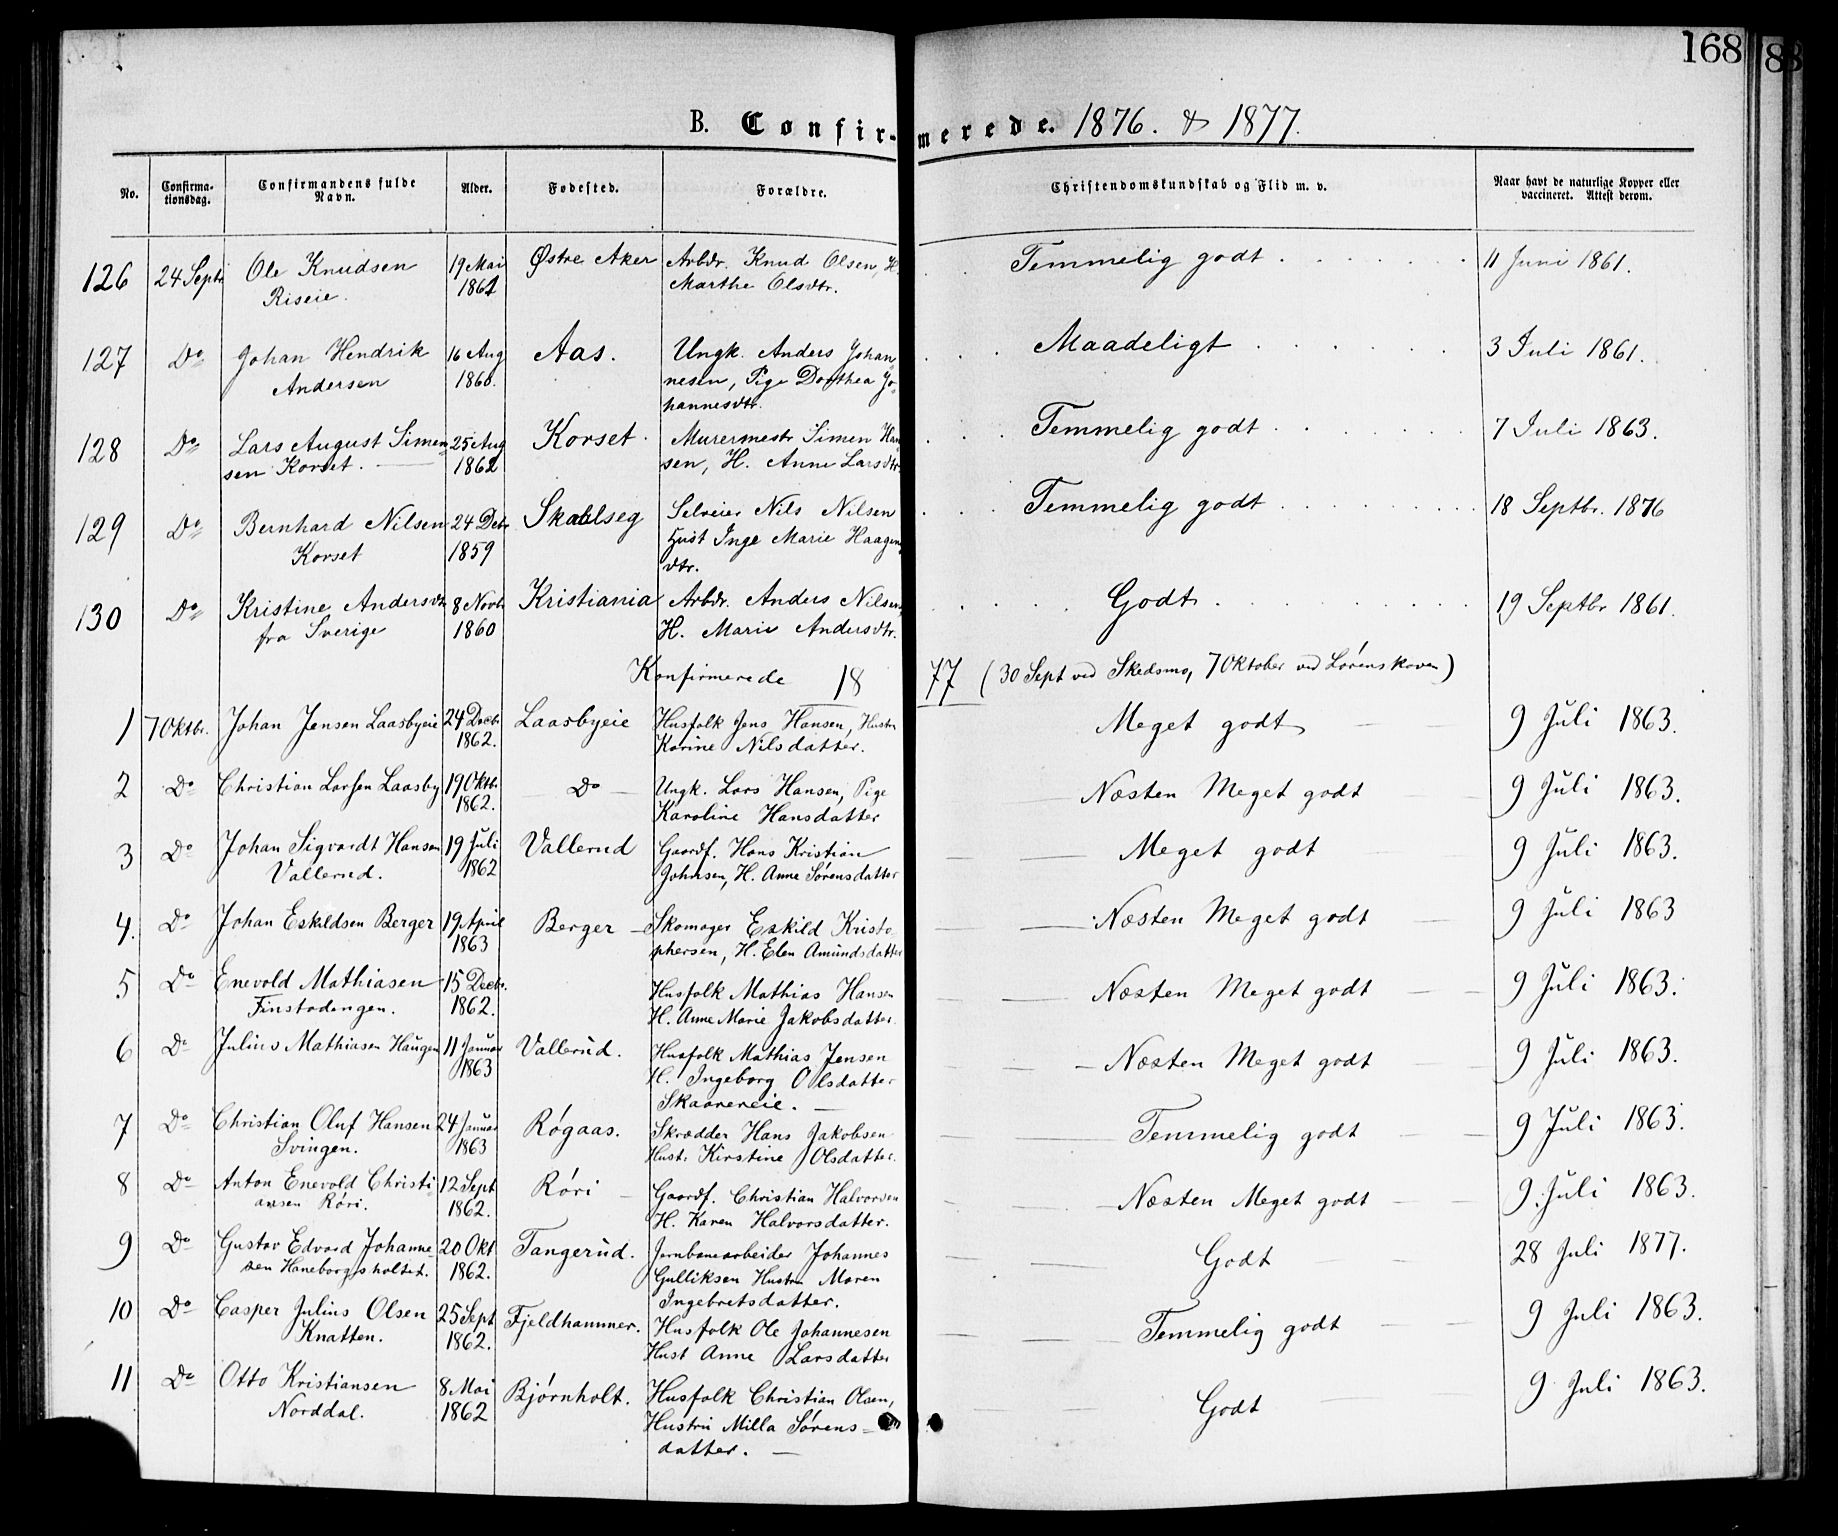 168
88
B. Confir-merede. 1876. & 1877.
No. Confirma-tionsdag. Confirmandens fulde Navn. Alder. Fødested. Forældre. Christendomskundskab og Flid m. v. Naar havt de naturlige Kopper eller vaccineret. Attest derom.
126 24 Septr Ole Knudsen 19 Mai Østre Aker Arbdr. Knud Olsen, H. Temmelig godt 11 Juni 1861.
Riseie. 1861 Marthe Olsdtr.
127 Do Johan Hendrik 16 Aug Aas. Ungk. Anders Johan Maadeligt 3 Juli 1861.
Andersen 1860. nesen, Pige Dorthea Jo-
hannesdtr.
128 Do Lars August Simen 25 Aug Korset. Murermestr Simen Han Temmelig godt 7 Juli 1863.
sen Korset. 1862 sen, H. Anne Larsdtr.
129 Do Bernhard Nilsen 24 Decbr Skalseg Selveier Nils Nilsen Temmelig godt 18 Septbr. 1876
Korset 1859 Hust Inge Marie Haagens
dtr.
130 Do Kristine Andersdtr 8 Novbr Kristiania Arbdr. Anders Nilsen, Godt 19 Septbr 1861.
fra Sverige 1860 H. Marie Andersdtr.
Konfirmerede 1877 (30 Sept ved Skedsmo, 7 Oktober ved Lørenskoven)
1 7 Oktbr. Johan Jensen Laasbyeie 24 Decbr Laasbyeie Husfolk Jens Hansen, Hustru Meget godt 9 Juli 1863.
1862. Karine Nilsdatter.
2 Do Christian Larsen Laasby 19 Oktbr Do Ungk. Lars Hansen, Pige Næsten Meget godt 9 Juli 1863.
1862. Karoline Hansdatter
3 Do Johan Sigvardt Hansen 19 Juli Vallerud Gaardf. Hans Kristian Meget godt 9 Juli 1863.
Vallerud. 1862 Johnsen, H. Anne Sørensdatter
4. Do Johan Eskildsen Berger 19 April Berger Skomager Eskild Kristo- Næsten Meget godt 9 Juli 1863
1863 phersen, H. Elen Amundsdatter
5 Do Enevold Mathiasen 15 Decbr. Husfolk Mathias Hansen Næsten Meget godt 9 Juli 1863.
Finstadengen. 1862. H. Anne Marie Jakobsdatter.
6 Do Julius Mathiasen Haugen 11 Januar Vallerud. Husfolk Mathias Jensen Næsten Meget godt 9 Juli 1863.
1863 H. Ingeborg Olsdatter
Skaarereie.
7 Do Christian Oluf Hansen 24 Januar Røgaas. Skrædder Hans Jakobsen Temmelig godt 9 Juli 1863.
Svingen. 1863 Hustr. Kirstine Olsdatter.
8 Do Anton Enevold Christi- 12 Sept Røri Gaardf. Christian Halvorsen Næsten Meget godt 9 Juli 1863.
ansen Røri. 1862. H. Karen Halvorsdatter.
9 Do Gustav Edvard Johanne 20 Okt Tangerud. Jernbanearbeider Johannes Godt 28 Juli 1877.
sen Haneborgsholtet. 1862. Gulliksen Hustru Maren
Ingebretsdatter.
10 Do Casper Julius Olsen 25 Sept Fjeldhammer. Husfolk Ole Johannesen Temmelig godt 9 Juli 1863.
Knatten. 1862. Hust Anne Larsdatter
11 Do Otto Kristiansen 8 Mai Bjørnholt. Husfolk Christian Olsen, Godt 9 Juli 1863.
Norddal. 1862 Hustru Milla Sørens-
datter.